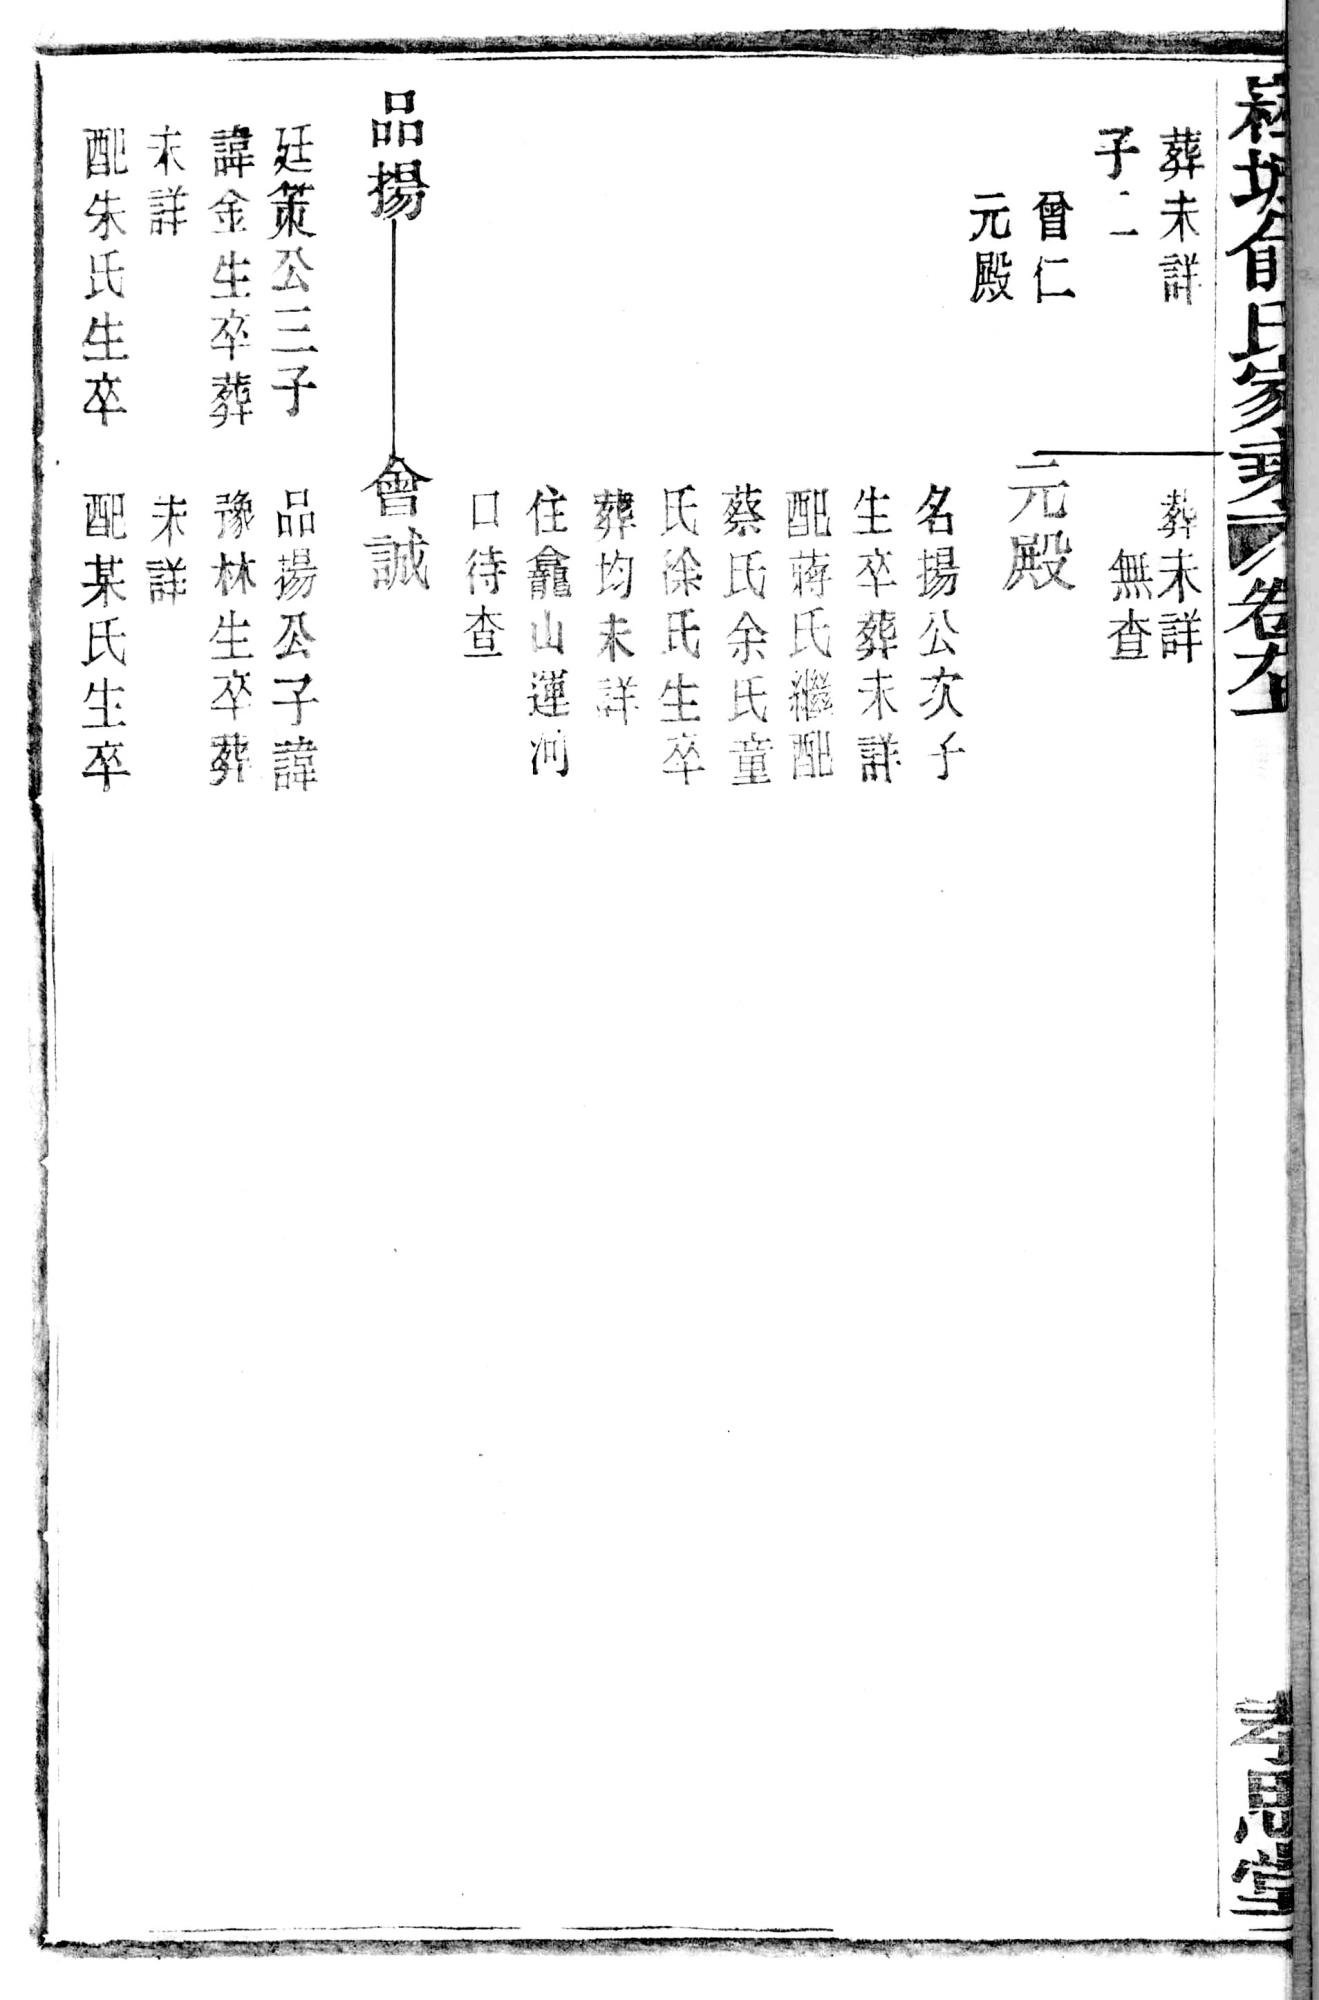 氏家乘
卷
孝思堂
葬未詳
子二
曾仁
元殿
品揚
廷策公三子
諱金生卒葬
未詳
配朱氏生卒
葬未詳
無查
元殿
名揚公次子
生卒葬未詳
配蔣氏繼配
蔡氏余氏童
氏涂氏生卒
葬均未詳
住龕山運河
口待查
會誠
品揚公子諱
豫林生卒葬
未詳
配某氏生卒